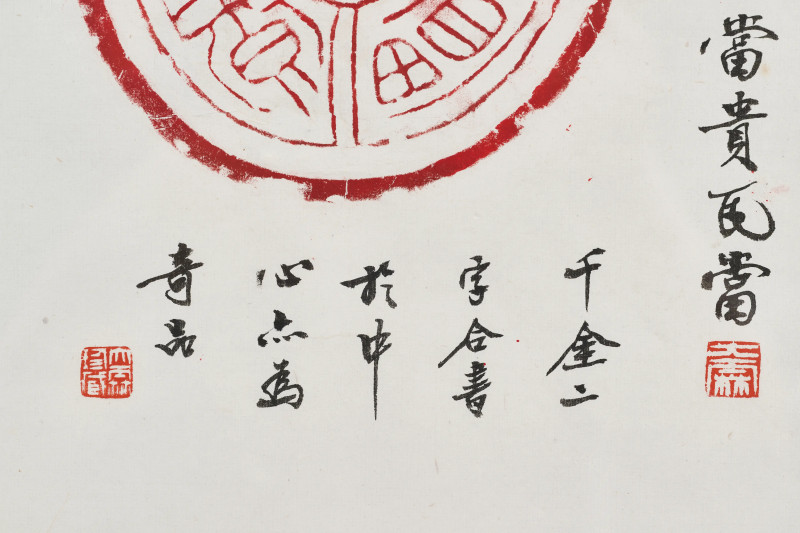 當貴瓦當
千金二
字合書
於中
心亦為
奇品